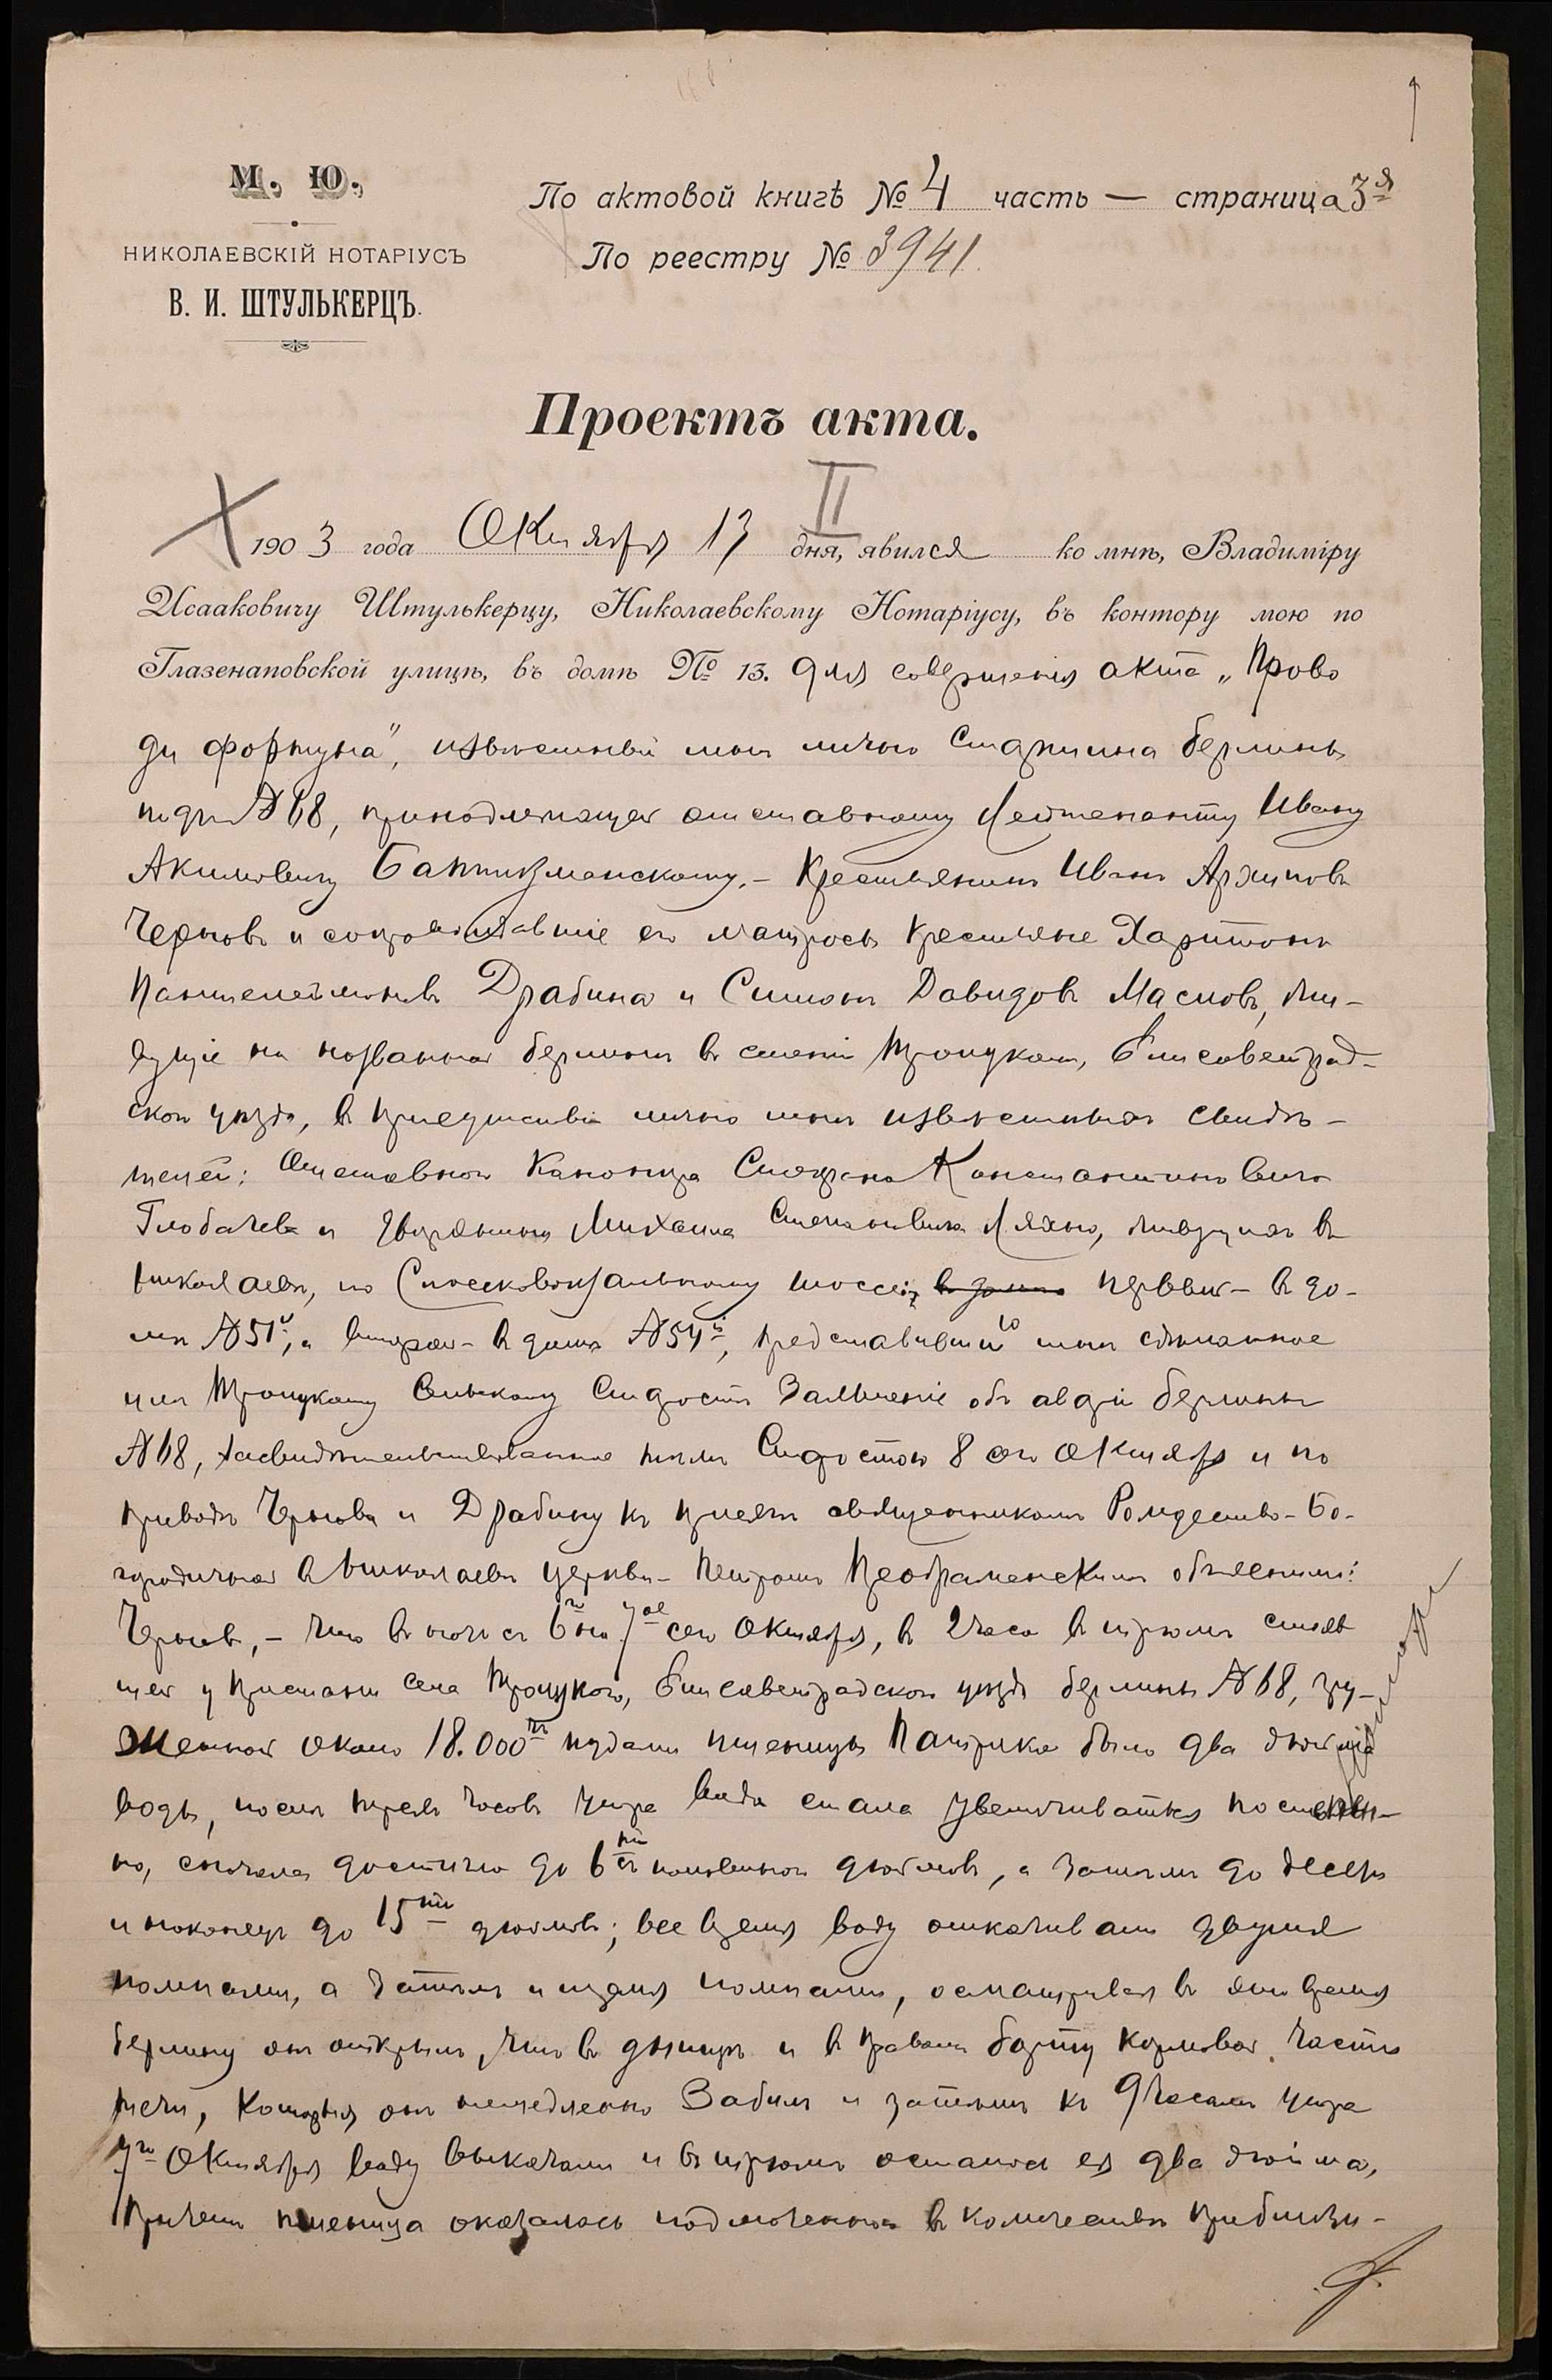 М. Ю.
НИКОЛАЕВСКІЙ НОТАРІУСЪ
В. И. ШТУЛЬКЕРЦЪ.
По актовой книгѣ № 4 часть — страница 3я
По реестру № 3941.
Проектъ акта.
II
1903 года Октября 13 дня, явился ко мнѣ, Владиміру
Исааковичу Штулькерцу, Николаевскому Нотаріусу, въ контору мою по
Глазенаповской улицѣ, въ домѣ № 13. для совершенія акта „Прово
ди фортуна", извѣстный мнѣ лично Старшина берлины
подъ № 68, принадлежащей отставному Лейтенанту Ивану
Акимовичу Баптизманскому. - Крестьянинъ Иванъ Архиповъ
Черновъ и сопровождавшіе его матросы крестьяне Харитонъ
Пантелеймоновъ Драбина и Симонъ Давидовъ Масловъ, жи-
вущіе на названной берлинѣ въ селеніи Троицкомъ, Елисаветград-
скаго уѣзда, въ присутствіи лично мнѣ извѣстныхъ свидѣ-
телей: Отставного Канонира Стефана Константиновича
Глобачева и дворянина Михаила Степановича Ляхно, живущихъ въ
Николаевѣ, по Спасско-вокзальному шоссе, въ домѣ первый - въ до-
мѣ № 51й, а второй - въ домѣ № 54й, представившій мнѣ сдѣланное
имъ Троицкому Сельскому Старостѣ Заявленіе объ аваріи берлины
№ 68, засвидѣтельствованное тѣмъ Старостою 8 сего Октября и по
приводѣ Чернова и Драбину къ присягѣ священникомъ Рождество-Бо-
городичной въ Николаевѣ церкви - Петромъ Преображенскимъ объяснили:
Черновъ, - что въ ночь съ 6го на 7ое сего Октября, въ 2 часа въ трюмѣ стояв
шей у пристани села Троицкаго, Елисаветградскаго уѣзда берлины № 68, гру-
женной около 18.000ю пудами пшеницы Патрика было два дюйма
воды, послѣ трехъ часовъ утра вода стала увеличиваться постепен-
но, сначала достигла до 6ти съ половиной дюймовъ, а затѣмъ до десяти
и наконецъ до 15ти дюймовъ; все время воду откачивали двумя
помпами, а затѣмъ и тремя помпами, осматривая въ это время
берлину онъ открылъ, что въ днищѣ и въ правомъ борту кормовой части
течи, которыя онъ немедленно забилъ и затѣмъ къ 9 часамъ утра
7го Октября воду выкачали и въ трюмѣ осталось ея два дюйма,
причемъ пшеница оказалась подмоченной въ количествѣ приблизи-